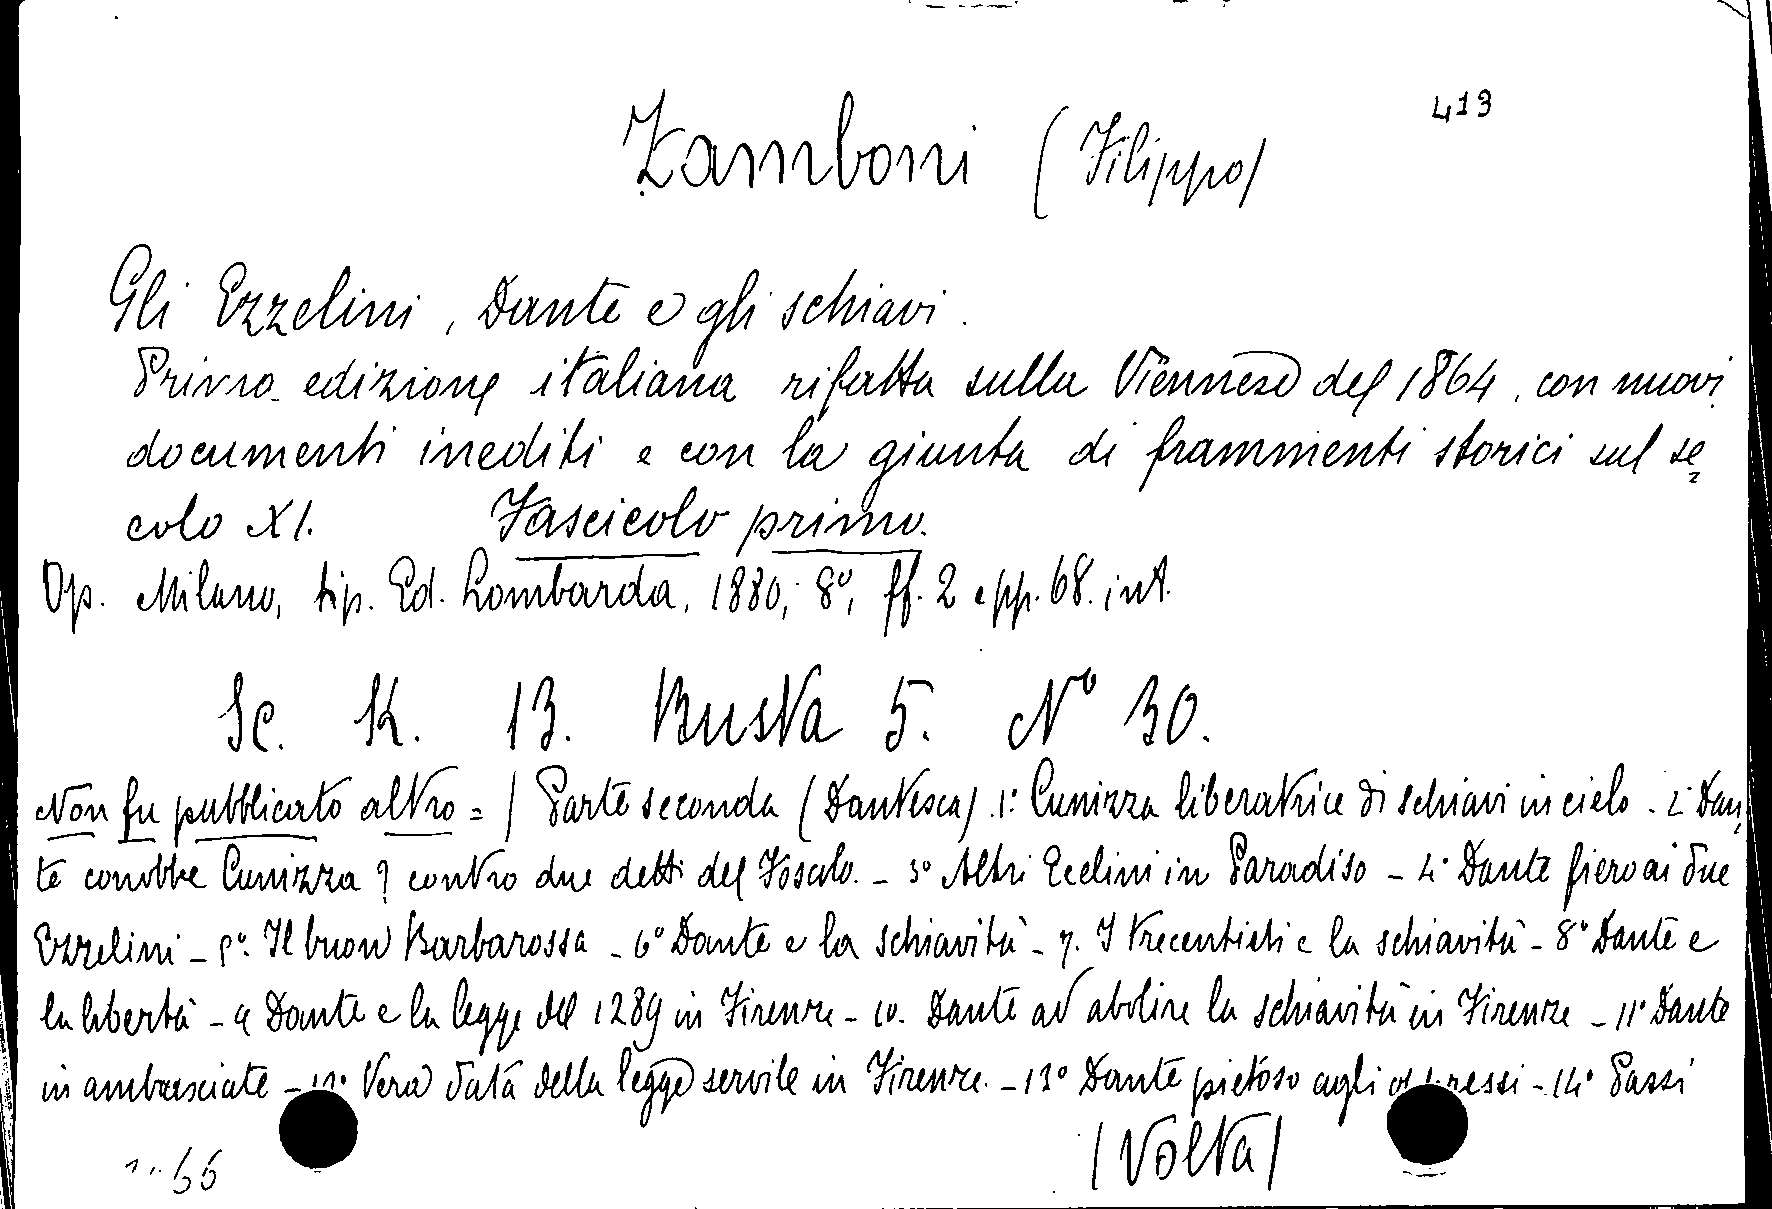 413
Zamboni (Filippo)
Gli Ezzelini, Dante e gli schiavi.
Prima edizione italiana rifatta sulla Viennese del 1864, con nuovi
documenti inediti e con la giunta di frammenti storici sul se
colo XI. Fascicolo primo.
Op. Milano, tip. Ed. Lombarda, 1880, 8º, ff. 2 e pp. 68. int.
Sc. K. 13. Busta 5. Nº 30.
Non fu pubblicato altro = / Parte seconda (Dantesca) .1º Cunizza liberatrice di schiavi in cielo - 2º Dan,
te conobbe Cunizza? contro due detti del Foscolo. - 3º Altri Ecelini in Paradiso - 4º Dante fiero ai due
Ezzelini - 5º. Il buon Barbarossa - 6º Dante e la schiavitù - 7. I Trecentisti e la schiavitù - 8º Dante e
la libertà - 9 Dante e la legge del 1289 in Firenze - 10. Dante ad abolire la schiavitù in Firenze - 11º Dante
in ambasciate - 12º Vera data della legge servile in Firenze. - 13º Dante pietoso agli oppressi - 14º Passi
(Volta)
66